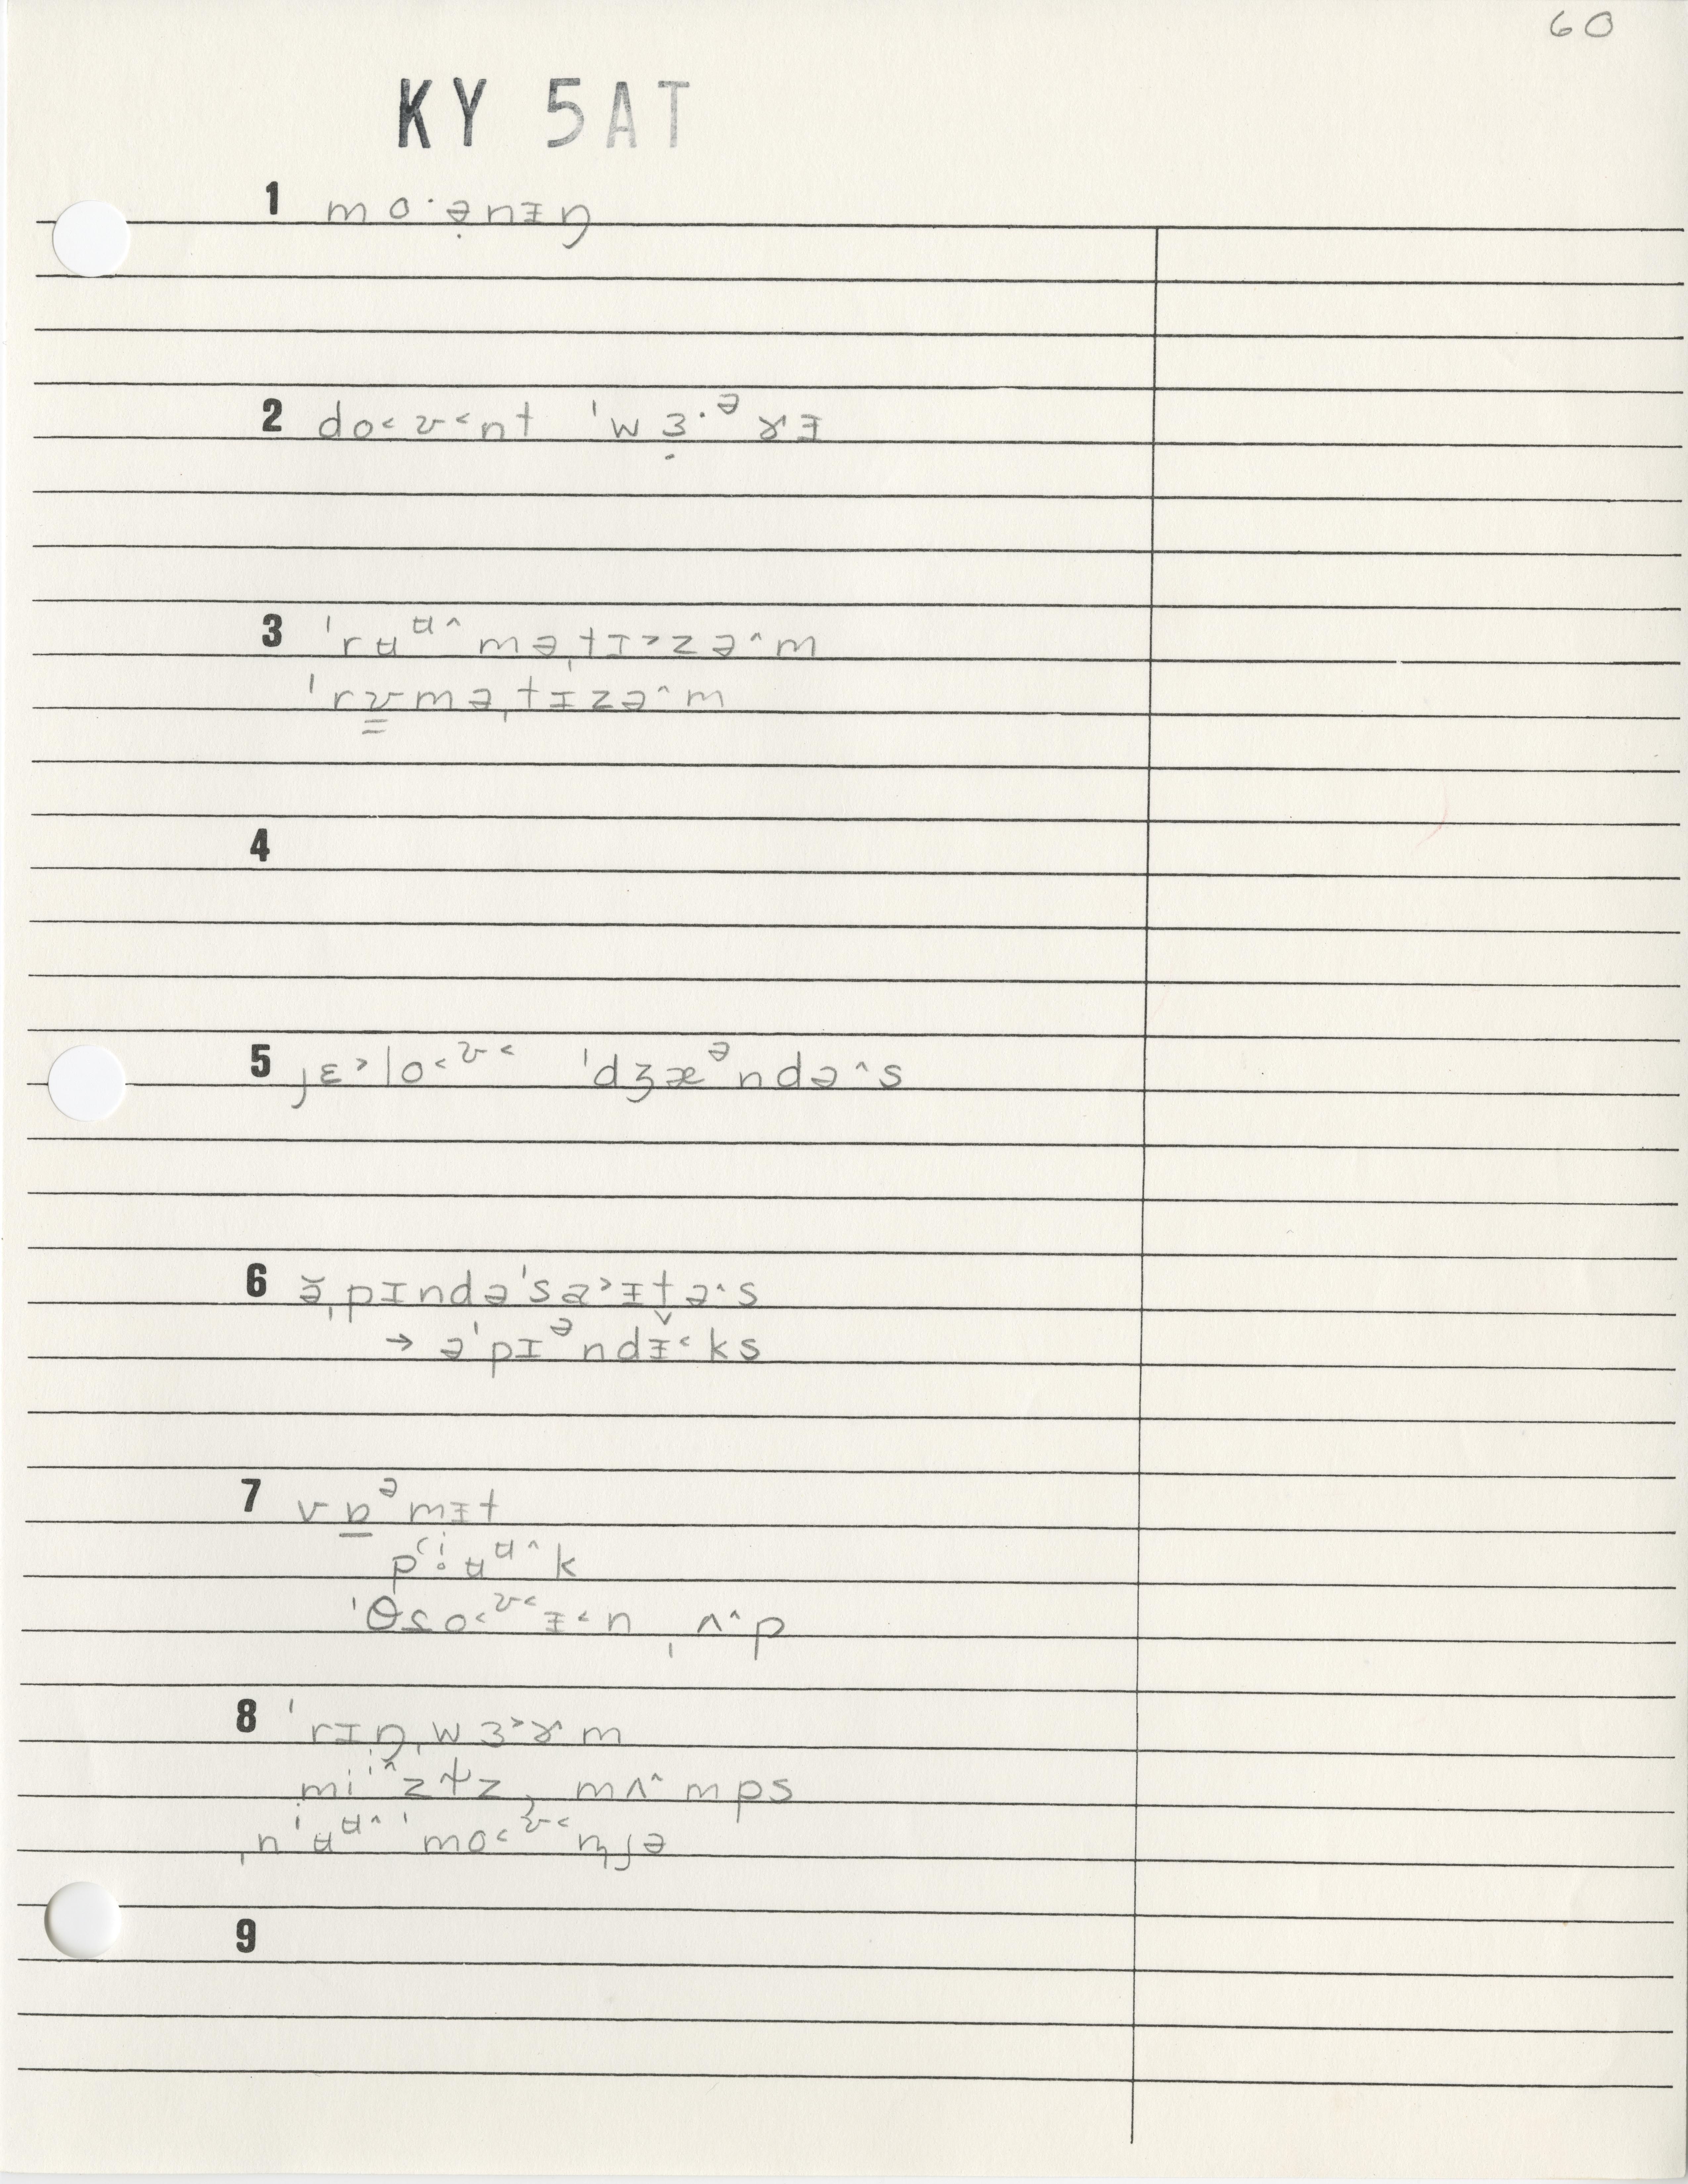 60
KY 5AT
1 mo·ə̣nɪ̵ŋ
2 do˂ʊ˂nt ˈwɜ̠·ᵊɤɪ̵
3 ˈrʉᶶ˄məˌtɪ˃zə˄m
ˈrʊ̳məˌtɪ̵zə˄m
4
5 jɛ˃lo˂ᶷ˂ ˈdʒæᵊndə˄s
6 ə̆ˌpɪndəˈsa˃ɪ̵t̬ə˄s
→ əˈpɪᵊndɪ̵˂ks
7 vɒ̠ᵊmɪ̵t
pʰʉᶶ˄k
ˈθro˂ᶷ˂ɪ̵˂n ˌʌ˄p
8 ˈrɪŋˌwɜ˃ɤ˄m
miⁱ˄zɫz, mʌ˄mps
ˌnʉᶶ˄ˈmo˂ᶷ˂njə
9